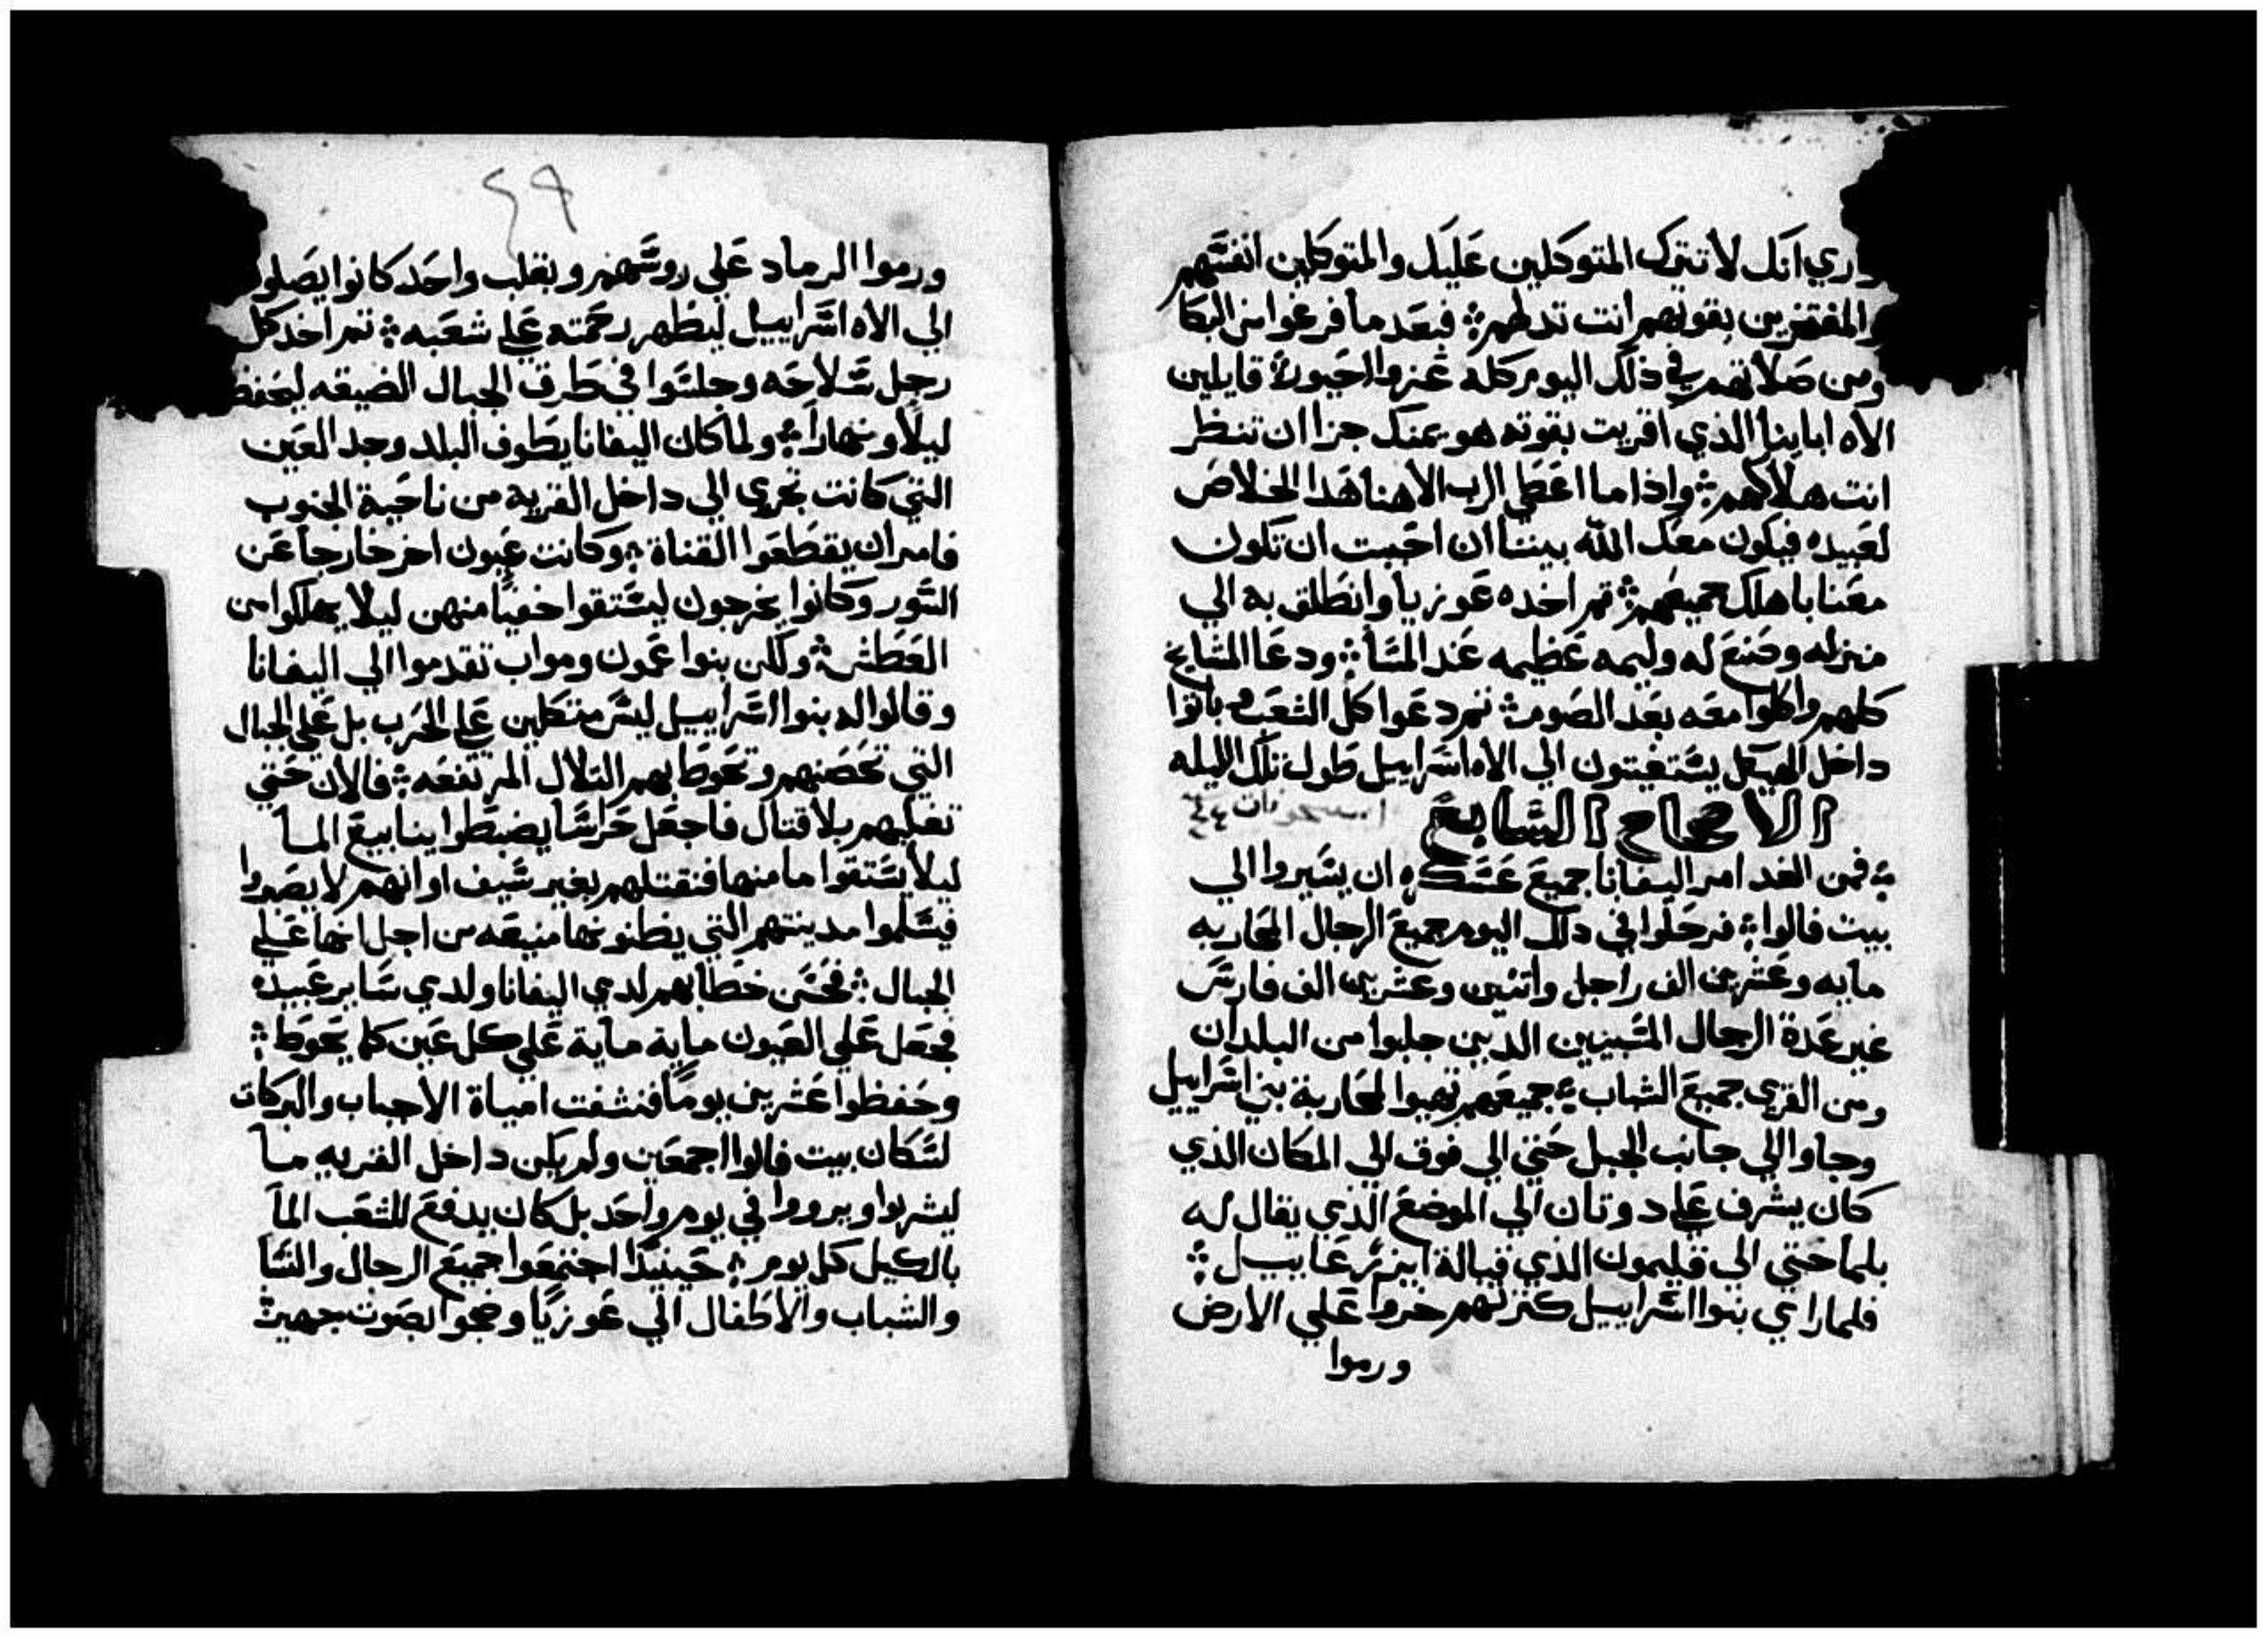 وري انك لا تترك المتوكلين عليك والمتوكلين انفسهم
والمفتخرين بقوتهم انت تدلهم فبعد ما فرغوا من البكا
ومن صلاتهم في ذلك اليوم كله عزوا احيور قايلين
الاه ابابنا الذي اقريت بقوته هو يمنك جزا ان تنظر
انت هلاكهم واذا ما اعطي الرب الاهنا هدا الخلاص
لعبيده فيكون معك الله بيننا ان احببت ان تكون
معنا باهلك جميعهم تم اخده عوزيا وانطلق به الي
منزله وصنع له وليمه عظيمه عند المسا ودعا المشايخ
كلهم واكلوا معه بعد الصوم تم دعوا كل الشعب وباتوا
داخل الهيكل يستغيتون الي الاه اسراييل طول تلك الليله
الاصحاح السابع
فمن الغد امر اليفانا جميع عسكره ان يسيروا الي
بيت فالوا فرحلوا في دلك اليوم جميع الرجال المحاربه
مايه وعشرين الف راجل واتنين وعشرين الف فارس
غير عدة الرجال المسبيين الدين جلبوا من البلدان
ومن القري جميع الشباب جميعهم تهيوا لمحاربة بني اسراييل
وجاوا الي جانب الجبل حتي الي فوق الي المكان الذي
كان يشرف علي دوتان الي الموضع الذي يقال له
بلما حتي الي قليمون الذي قبالة ايزرعاييل
فلما راي بنوا اسراييل كترتهم خروا علي الارض
ورموا
٤٩
ورموا الرماد علي روسهم وبقلب واحد كانوا يصلو
الي الاه اسراييل ليظهر رحمته علي شعبه تم اخد كل
رجل سلاحه وجلسوا في طرق الجبال الضيقه ليحفظ
ليلا ونهارا ولما كان اليفانا يطوف البلد وجد العين
التي كانت تجري الي داخل القريه من ناحية الجنوب
فامر ان يقطعوا القناة وكانت عيون اخر خارجا عن
السور وكانوا يخرجون ليستقوا خفيا منهن ليلا يهلكوا من
العطش ولكن بنوا عمون ومواب تقدموا الي اليفانا
وقالوا له بنوا اسراييل ليس متكلين علي الحرب بل علي الجبال
التي تحصنهم وتحوط بهم التلال المرتفعه فالان حتي
تغلبهم بلا قتال فاجعل حراسا يضبطوا ينابيع الما
ليلا يستقوا ما منها فنقتلهم بغير سيف او انهم لا يصبروا
فيسلموا مدينتهم التي يظنونها منيعه من اجل انها علي
الجبال فحسن خطابهم لدي اليفانا ولدي ساير عبيده
فجعل علي العيون ماية ماية علي كل عين كما يحوط
وحفظوا عشرين يوما فنشفت امياة الاجباب والبركات
لسكان بيت فالوا اجمعين ولم يكن داخل القريه ما
ليشربوا ويرووا في يوم واحد بل كان يدفع للشعب الما
بالكيل كل يوم حينيدا اجتمعوا جميع الرجال والنسا
والشباب والاطفال الي عوزيا وضجوا بصوت جهير